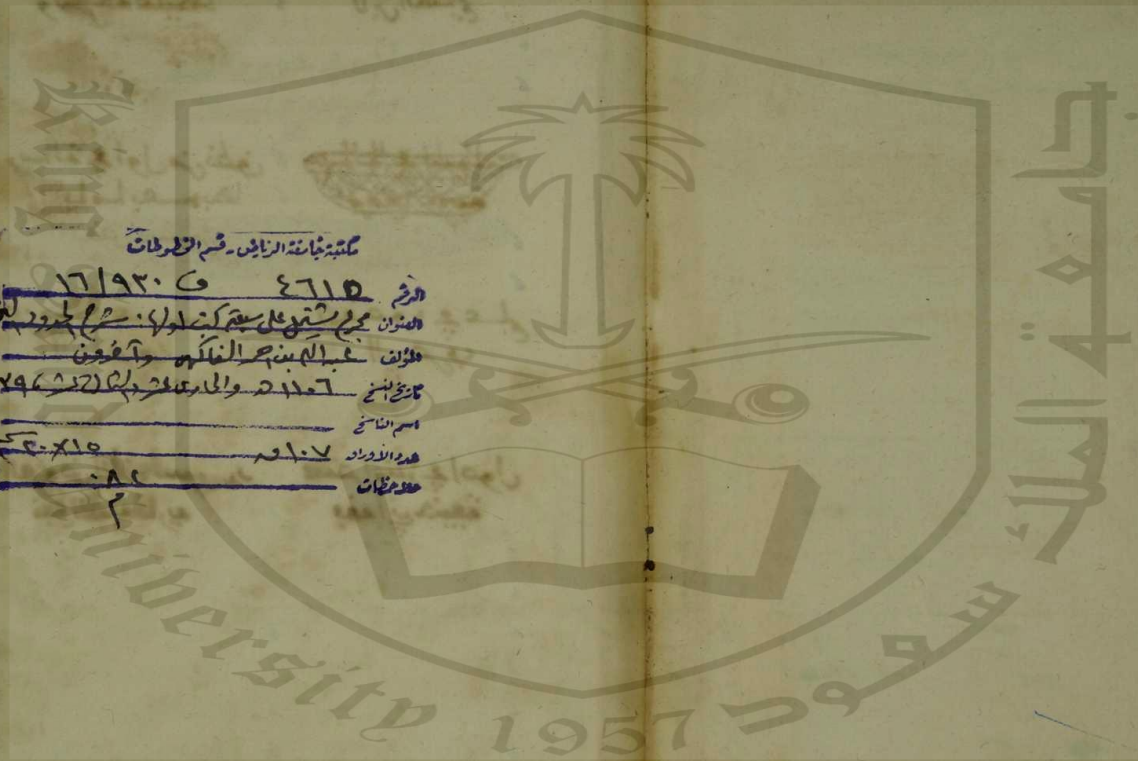 مكتبة جامعة الرياض - قسم المخطوطات
الرقم ٤٦١٥ ف ٩٣٠/١٦
العنوان مجموع يشتمل على سبعة كتب أولها: شرح الحدود
المؤلف عبدالله بن احمد الفاكهي وآخرون
تاريخ النسخ ١١٠٦ هـ والحادي عشر
اسم الناسخ
عدد الاوراق ١٠٧ ق ١٥×٢٠
ملاحظات ٠٨٢
م
جامعة الملك سعود
King Saud University 1957